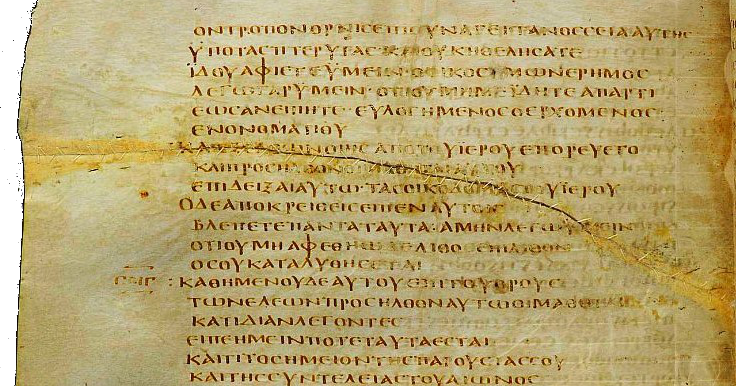 ΟΝΤΡΟΠΟΝΟΡΝΙΣΕΠΙΣΥΝΑΓΕΙΤΑΝΟΣΣΕΙΑΑΥΤΗΣ
ΫΠΟΤΑΣΠΤΕΡΥΓΑΣΚΑΙΟΥΚΗΘΕΛΗΣΑΤΕ
ΪΔΟΥΑΦΙΕΤΕΫΜΕΙΝ·ΟΟΙΚΟΣΫΜΩΝΕΡΗΜΟΣ
ΛΕΓΩΓΑΡΥΜΕΙΝ·ΟΤΙΟΥΜΗΜΕΪΔΗΤΕΑΠΑΡΤΙ
ΕΩΣΑΝΕΙΠΗΤΕ·ΕΥΛΟΓΗΜΕΝΟΣΟΕΡΧΟΜΕΝΟΣ
ΕΝΟΝΟΜΑΤΙΘΥ
ΑΠΟΤΟΥΪΕΡΟΥΕΠΟΡΕΥΕΤΟ
ΚΑΙΠΡΟΣΗΛΘΟΝΟΙΜΑΘΗΤΑΙΑΥΤΟΥ
ΕΠΙΔΕΙΞΑΙΑΥΤΩΤΑΣΟΙΚΟΔΟΜΑΣΤΟΥΪΕΡΟΥ
ΟΔΕΑΠΟΚΡΕΙΘΕΙΣΕΙΠΕΝΑΥΤΟΙΣ
ΒΛΕΠΕΤΕΠΑΝΤΑΤΑΥΤΑ·ΑΜΗΝΛΕΓΩΫΜΕΙΝ
ΟΤΙΟΥΜΗΑΦΕΘΗΩΔΕΛΙΘΟΣΕΠΙΛΙΘΟΝ
ΟΣΟΥΚΑΤΑΛΥΘΗΣΕΤΑΙ
:ΚΑΘΗΜΕΝΟΥΔΕΑΥΤΟΥΕΠΙΤΟΥΟΡΟΥΣ
ΤΩΝΕΛΕΩΝΠΡΟΣΗΛΘΟΝΑΥΤΩΟΙΜΑΘΗΤΑΙ
ΚΑΤΙΔΙΑΝΛΕΓΟΝΤΕΣ
ΕΙΠΕΗΜΕΙΝΠΟΤΕΤΑΥΤΑΕΣΤΑΙ
ΚΑΙΤΙΤΟΣΗΜΕΙΟΝΤΗΣΠΑΡΟΥΣΙΑΣΣΟΥ
ΚΑΙΤΗΣΣΥΝΤΕΛΕΙΑΣΤΟΥΑΙΩΝΟΣ